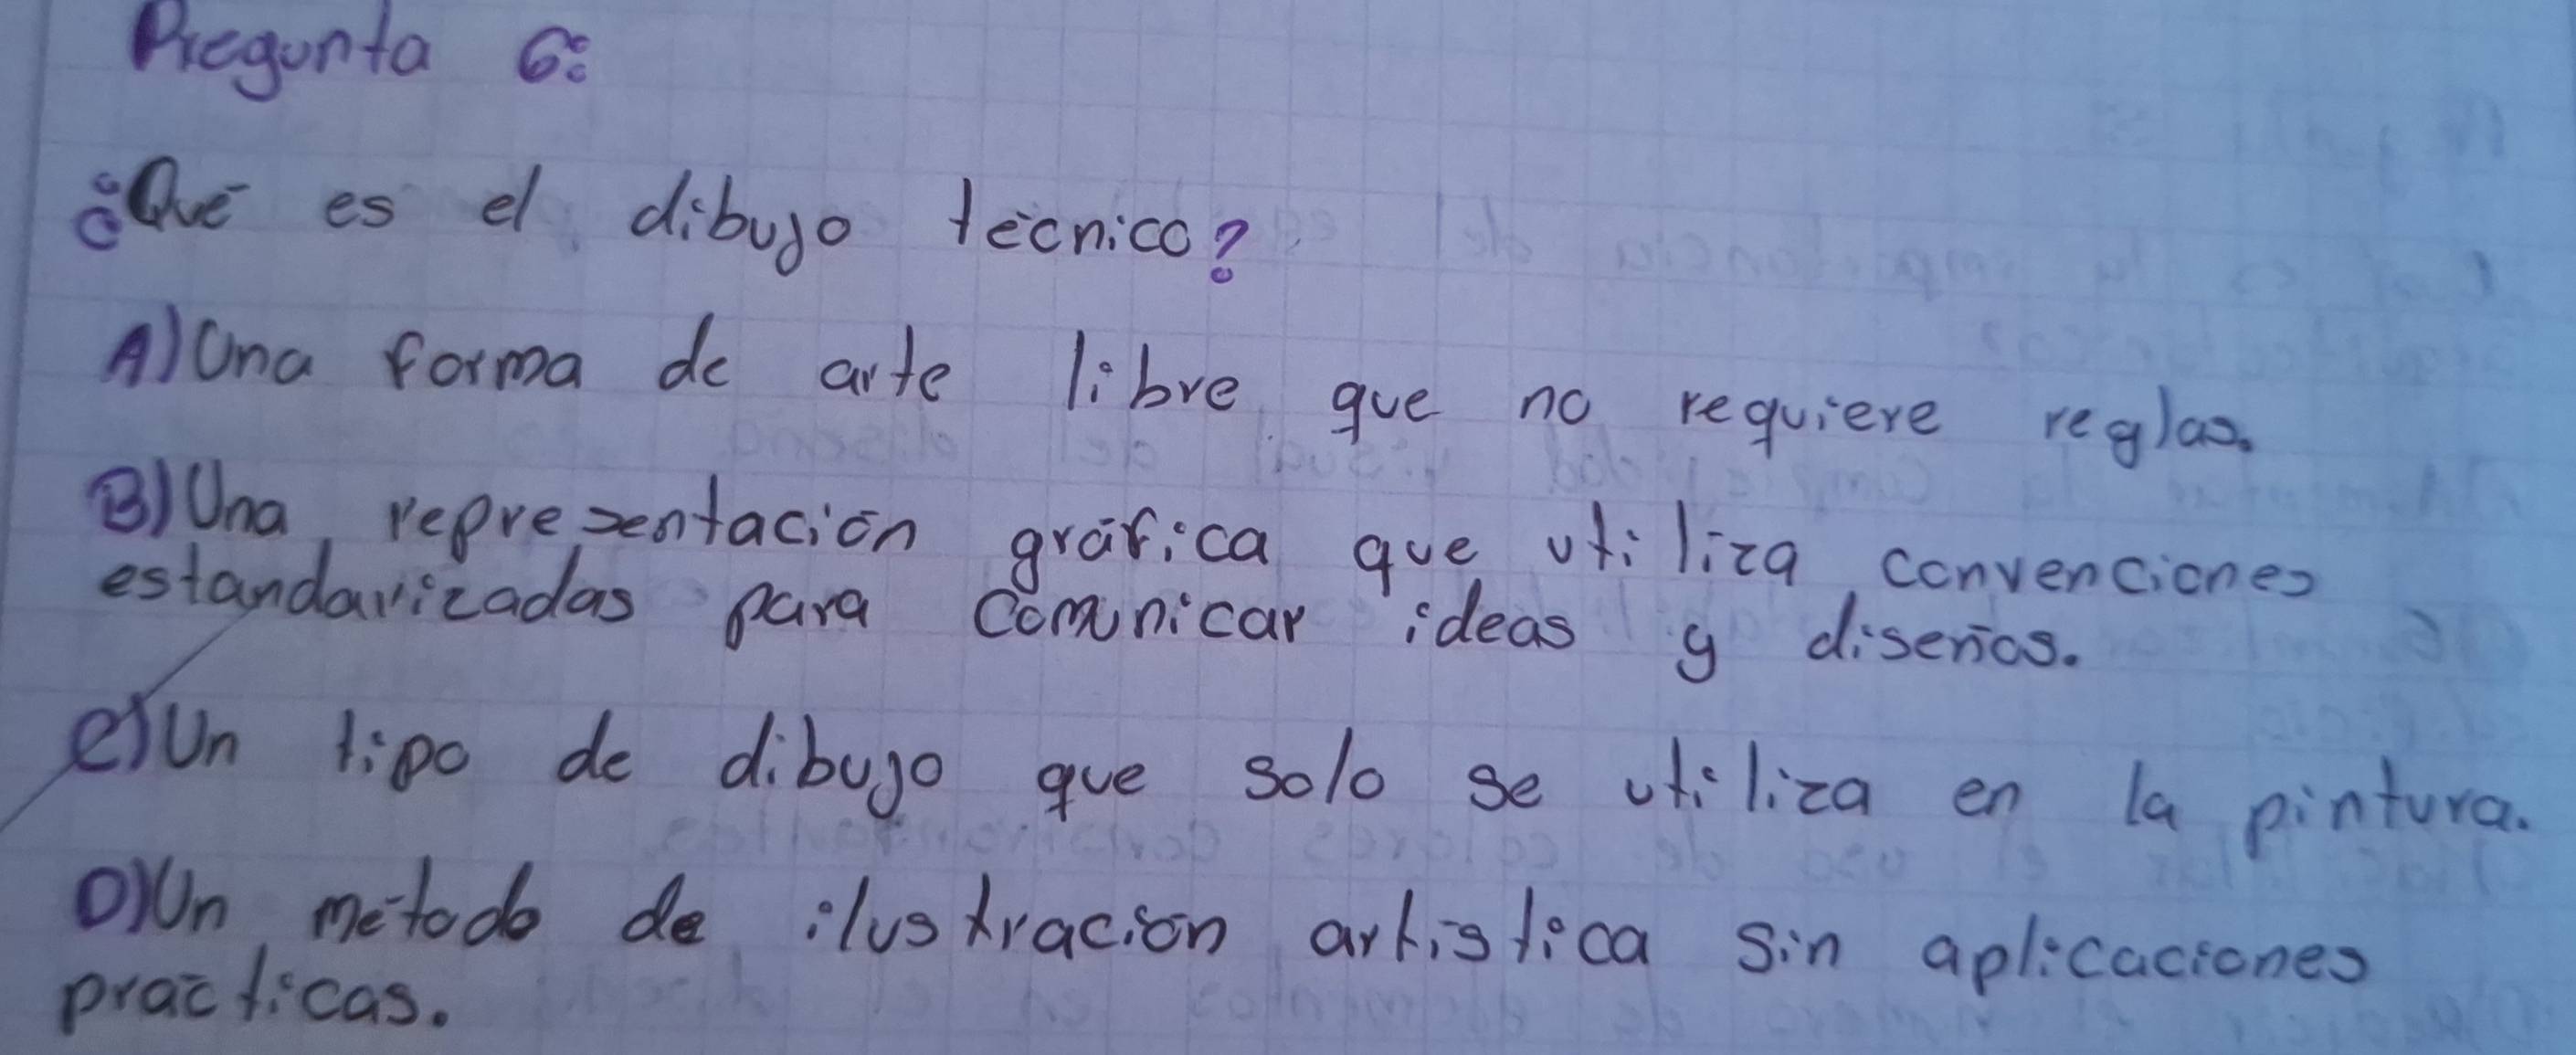 Pregunta 6:
¿Qué es el dibujo técnico?
A) Una forma de arte libre que no requiere reglas.
B) Una representación gráfica que utiliza convenciones
estandarizadas para comunicar ideas y diseños.
C) Un tipo de dibujo que solo se utiliza en la pintura.
D) Un método de ilustración artistica sin aplicaciones
prácticas.